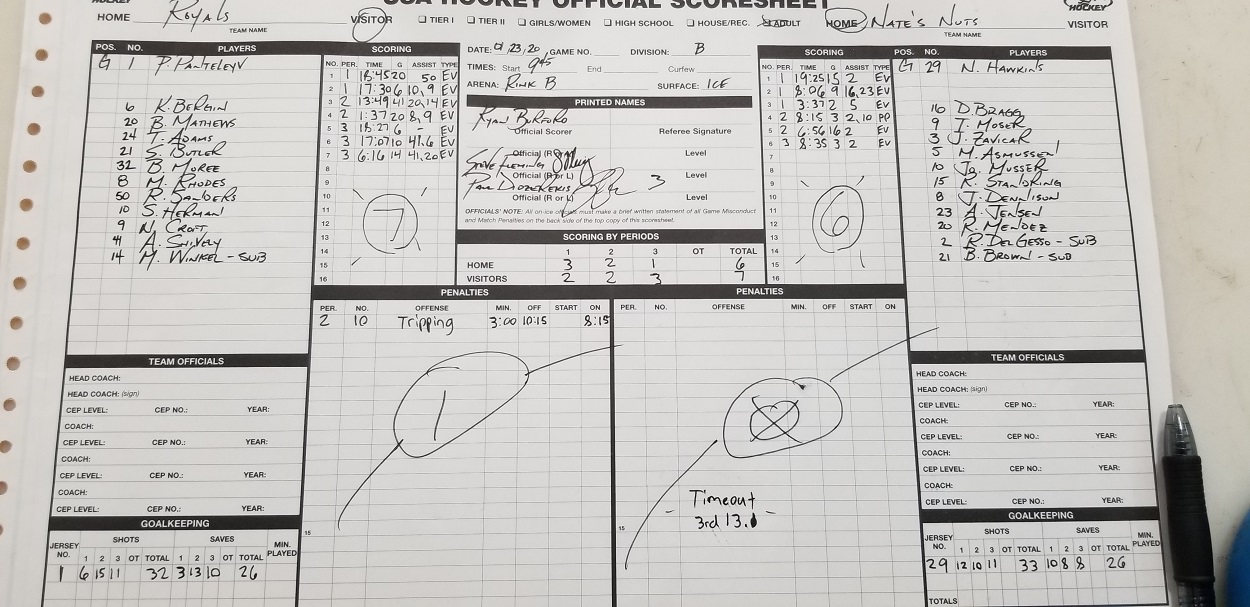 USA HOCKEY OFFICIAL SCORESHEET
HOCKEY
HOCKEY
HOME Royals VISITOR
TEAM NAME
☐ TIER I ☐ TIER II ☐ GIRLS/WOMEN ☐ HIGH SCHOOL ☐ HOUSE/REC. ADULT
HOME Nate's Nuts VISITOR
TEAM NAME
POS. NO. PLAYERS
G 1 P. Panteleyv
6 K. Bergin
20 B. Mathews
24 T. Adams
21 S. Butler
32 B. Moree
8 M. Rhodes
50 R. Sanders
10 S. Herman
9 N. Croft
41 A. Snively
14 M. Winkel - SUB
SCORING
NO. PER. TIME G ASSIST TYPE
1 1 18:45 20 50 EV
2 1 17:30 6 10,9 EV
3 2 13:49 41 20,14 EV
4 2 1:37 20 8,9 EV
5 3 18:27 6 - EV
6 3 17:07 10 41,6 EV
7 3 6:16 14 41,20 EV
8
9
10
11
12
13
14
15
16
7
DATE: 9/23/20 GAME NO. DIVISION: B
TIMES: Start 9:45 End Curfew
ARENA: Rink B SURFACE: ICE
PRINTED NAMES
Ryan Burford
Official Scorer Referee Signature
Official (R or L) Level
Steve Fleming
Official (R or L) Level
Paul Dozekeris 3
Official (R or L) Level
OFFICIALS' NOTE: All on-ice officials must make a brief written statement of all Game Misconduct
and Match Penalties on the back side of the top copy of this scoresheet.
SCORING BY PERIODS
1 2 3 OT TOTAL
HOME 3 2 1 6
VISITORS 2 2 3 7
SCORING
NO. PER. TIME G ASSIST TYPE
1 1 19:25 15 2 EV
2 1 8:06 9 16,23 EV
3 1 3:37 2 5 EV
4 2 8:15 3 2,10 PP
5 2 6:56 16 2 EV
6 3 8:35 3 2 EV
7
8
9
10
11
12
13
14
15
16
6
POS. NO. PLAYERS
G 29 N. Hawkins
16 D. Bragg
9 T. Moser
3 J. Zavicar
5 M. Asmussen
10 Jo. Musser
15 K. Standring
8 J. Dennison
23 A. Jensen
20 R. Mendez
2 R. DelGesso - SUB
21 B. Brown - SUB
PENALTIES
PER. NO. OFFENSE MIN. OFF START ON
2 10 Tripping 3:00 10:15 8:15
1
15
PENALTIES
PER. NO. OFFENSE MIN. OFF START ON
Timeout
- 3rd 13.1 -
15
TEAM OFFICIALS
HEAD COACH:
HEAD COACH: (sign)
CEP LEVEL: CEP NO.: YEAR:
COACH:
CEP LEVEL: CEP NO.: YEAR:
COACH:
CEP LEVEL: CEP NO.: YEAR:
COACH:
CEP LEVEL: CEP NO.: YEAR:
GOALKEEPING
JERSEY NO. SHOTS 1 2 3 OT TOTAL SAVES 1 2 3 OT TOTAL MIN. PLAYED
1 6 15 11 32 3 13 10 26
TEAM OFFICIALS
HEAD COACH:
HEAD COACH: (sign)
CEP LEVEL: CEP NO.: YEAR:
COACH:
CEP LEVEL: CEP NO.: YEAR:
COACH:
CEP LEVEL: CEP NO.: YEAR:
COACH:
CEP LEVEL: CEP NO.: YEAR:
GOALKEEPING
JERSEY NO. SHOTS 1 2 3 OT TOTAL SAVES 1 2 3 OT TOTAL MIN. PLAYED
29 12 10 11 33 10 8 8 26
TOTALS